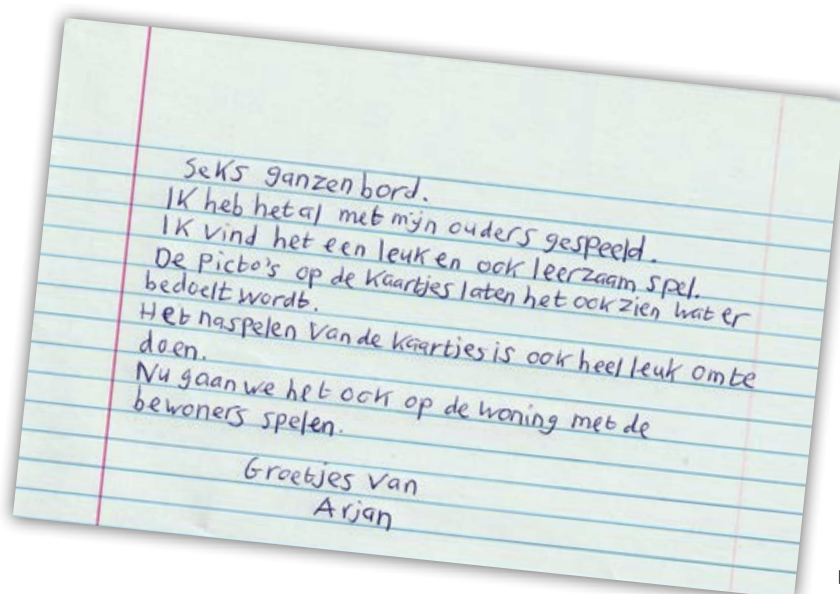 Seks ganzenbord.
Ik heb het al met mijn ouders gespeeld.
Ik vind het een leuk en ook leerzaam spel.
De picto's op de kaartjes laten het ook zien wat er
bedoelt wordt.
Het naspelen van de kaartjes is ook heel leuk om te
doen.
Nu gaan we het ook op de woning met de
bewoners spelen.
Groetjes van
Arjan